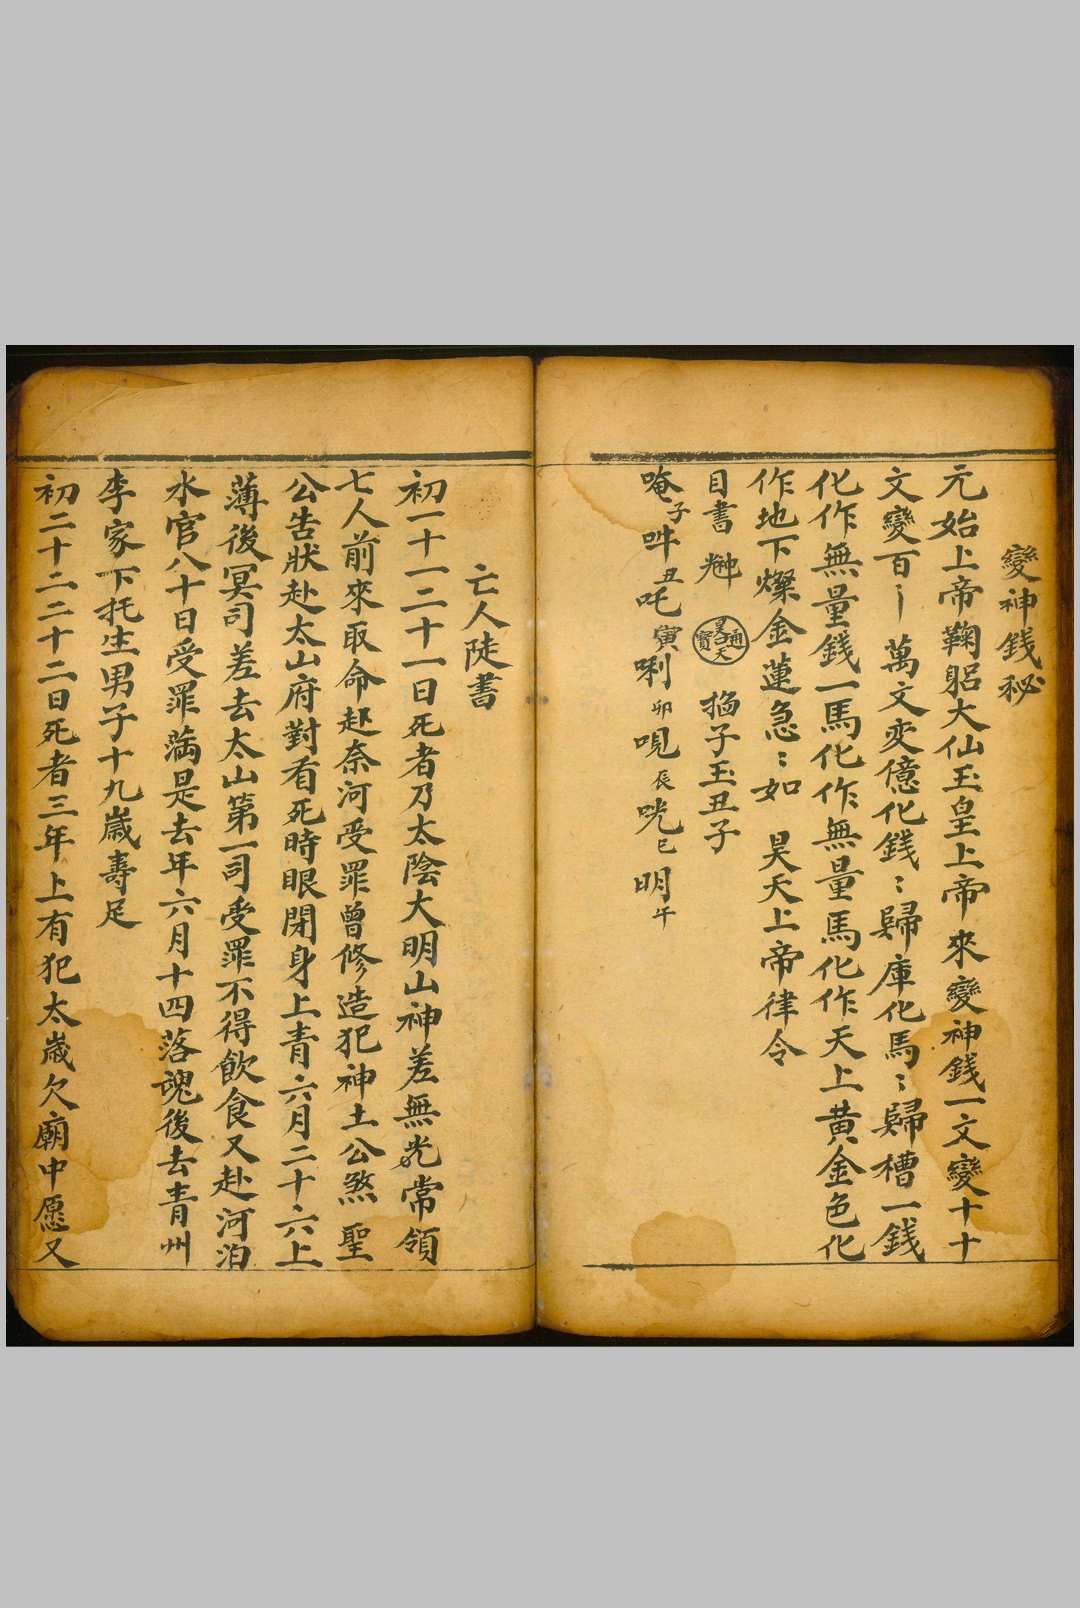 變神錢秘
元始上帝鞠躬大仙玉皇上帝來變神錢一文變十十
文變百〻萬文変億化錢〻歸庫化馬〻歸槽一錢
化作無量錢一馬化作無量馬化作天上黃金色化
作地下燦金蓮急〻如 昊天上帝律令
目書 昊天通寳 子玉丑子
唵子吽丑吒寅唎卯哯辰咣巳明午
亡人陡書
初一十一二十一日死者乃太陰大明山神差無光常領
七人前來取命起奈河受罪曾修造犯神土公煞聖
公告狀赴太山府對看死時眼閉身上青六月二十六上
薄後冥司差去太山第一司受罪不得飲食又赴河泊
水官八十日受罪滿是去年六月十四落魂後去青州
李家下托生男子十九歲壽足
初二十二二十二日死者三年上有犯太歲欠廟中愿又